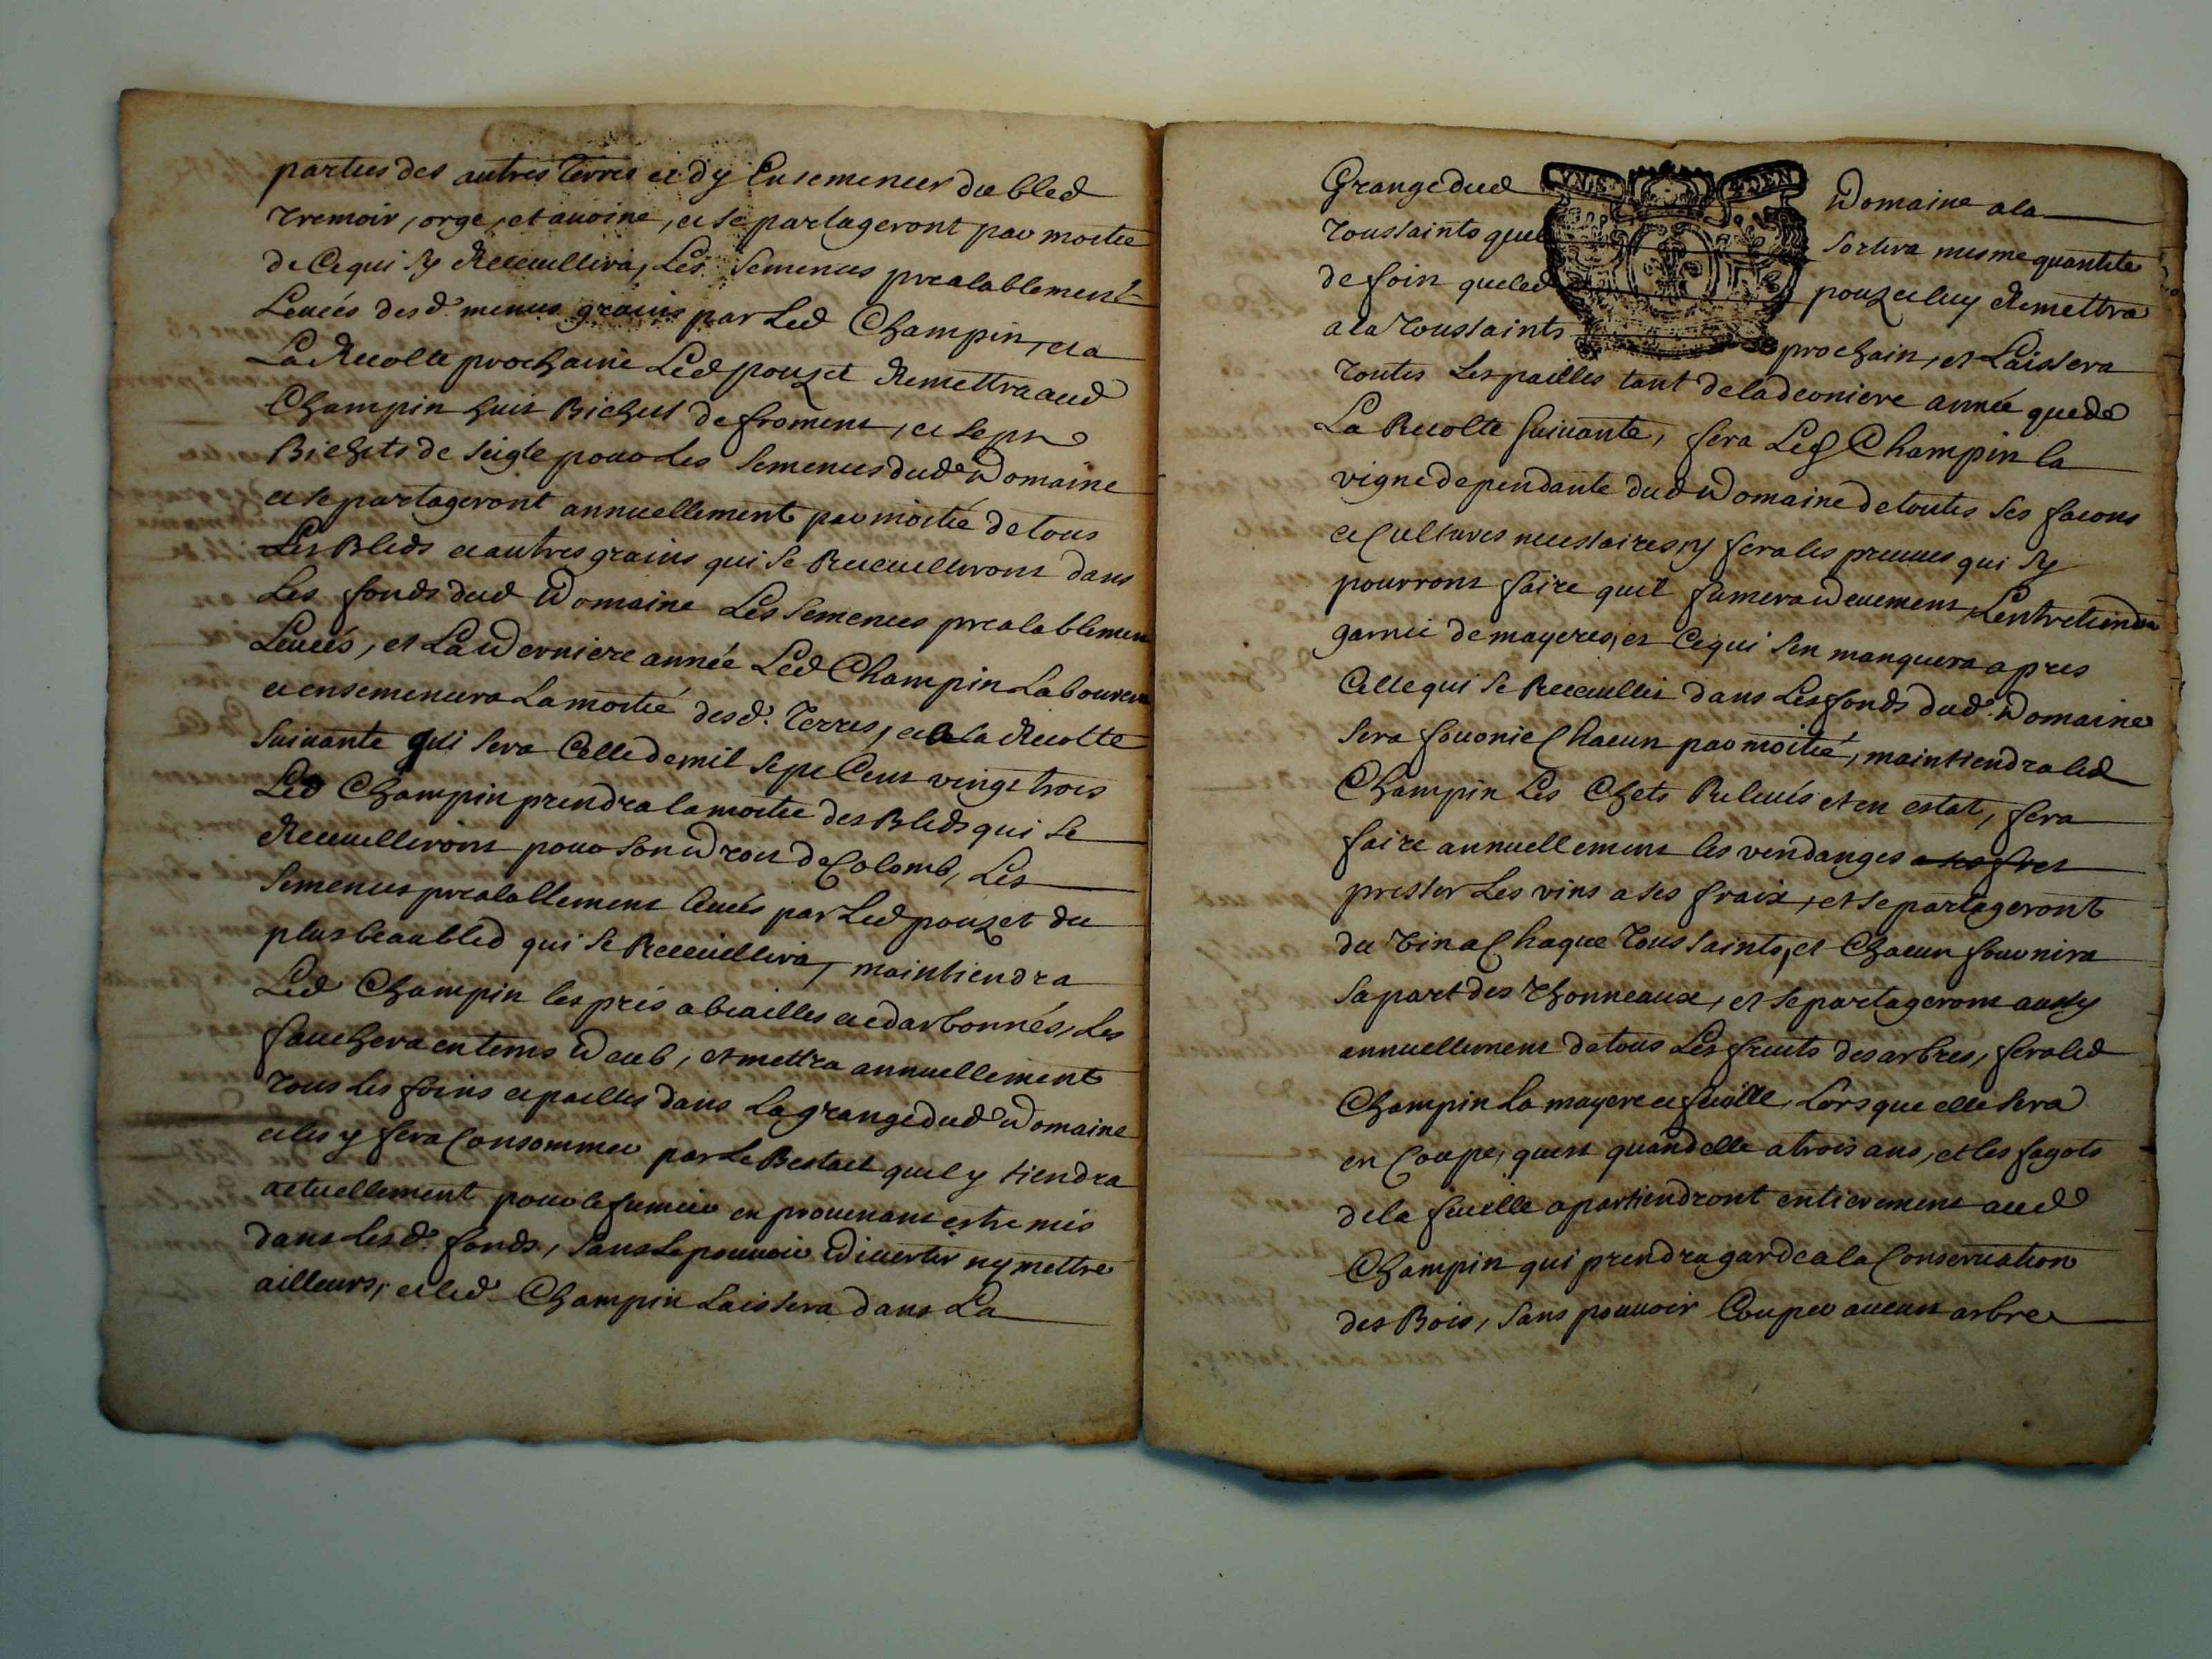 parties des autres terres et dy Ensemencer du bled
tremoir, orge, et auoine, et se partageront par moitie
de Ce qui sy Recueullira, Les semences prealablement
Leuées desd. menus grains par Led Champin, et a
La Recolte prochaine Led pouzet Remettra aud
Champin huit Bichets de froment, et sept
Bichets de seigle pour Les semences dud Domaine
et se partageront annuellement par moitié de tous
Les Bleds et autres grains qui se Recueulliront dans
Les fonds dud Domaine Les semences prealablement
Leueés, et La Derniere année Led Champin Labourera
et ensemencera La moitié desd. Terres, et a la Recolte
suiuante qui sera Celle de mil sept Cent vingt trois
Led Champin prendra la moitie des Bleds qui se
Recueulliront pour son Droit de Colomb, Les
semences prealablement leueés par Led pouzet du
plus beau bled qui se Recueullira, maintiendra
Led Champin les prés abeailles et edarbonnés, Les
fauchera en tems Deub, et mettra annuellement
tous Les foins et pailles dans La grange dud Domaine
et les y fera Consommer par Le Bestail quil y tiendra
actuellement pour le fumier en prouenant estre mis
dans Lesd. fonds, sans Le pouuoir Diuertir ny mettre
ailleurs, et led Champin Laissera dans La
Grange dud Domaine a la
Toussaints que sortira mesme quantité
de foin que led pouzet luy Remettra
a la Toussaints prochain, et Laissera
toutes Les pailles tant de la derniere année que de
La Recolte suiuante, fera Led Champin la
vigne dependante dud Domaine de toutes ses facons
et Cultures necessaires, y fera les preuues qui sy
pourront faire quil fumera Deuement, Lentretiendra
garnie de mayeres, et Ce qui sen manquera apres
Celle qui se Recueullir dans Les fonds dud. Domaine
sera fournie Chacun par moitié, maintiendra led
Champin Les Chets Releués et en estat, fera
faire annuellement les vendanges a ses frex
presser Les vins a ses fraix, et se partageront
du Tina Chaque Toussaints, et Chacun fournira
sa part des Thonneaux, et se partageront aussy
annuellement de tous Les fruits des arbres, fera led
Champin La mayere et feuille, Lors que elle sera
en Coupe, quest quand elle a trois ans, et les fagots
de la feuille apartiendront entierement aud
Champin qui prendra garde a la Conseruation
des Bois, sans pouuoir Couper aucun arbre